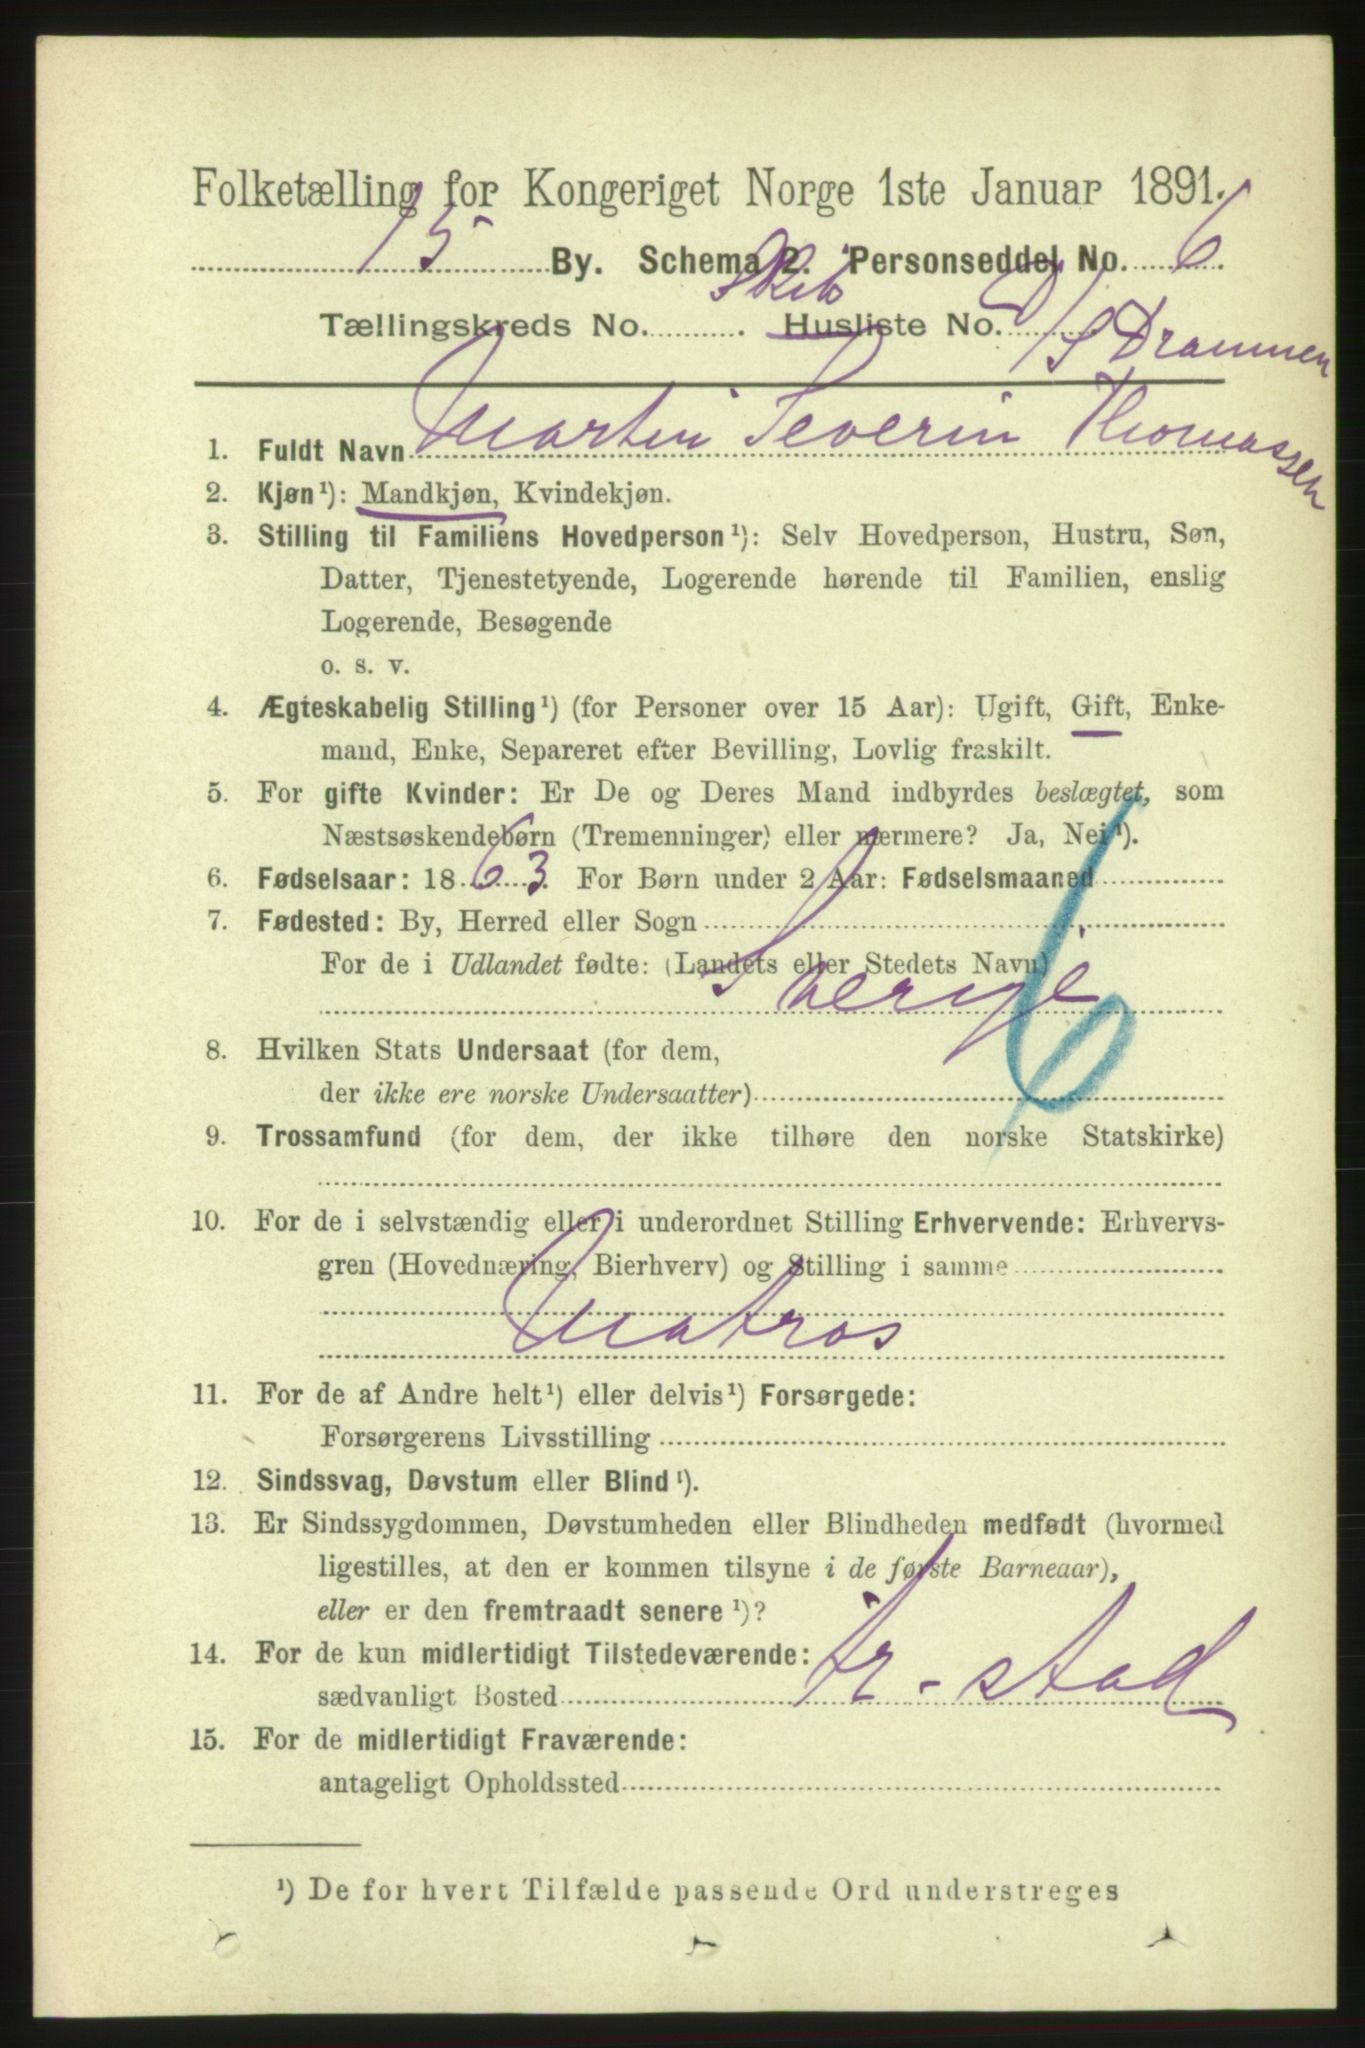 Folketælling for Kongeriget Norge 1ste Januar 1891.
15 By. Schema 2. Personseddel No. 6
Skibs
Tællingskreds No. Husliste No. D/S Drammen
1. Fuldt Navn Martin Severin Thomassen
2. Kjøn¹): Mandkjøn, Kvindekjøn.
3. Stilling til Familiens Hovedperson¹): Selv Hovedperson, Hustru, Søn,
Datter, Tjenestetyende, Logerende hørende til Familien, enslig
Logerende, Besøgende
o. s. v.
4. Ægteskabelig Stilling¹) (for Personer over 15 Aar): Ugift, Gift, Enke-
mand, Enke, Separeret efter Bevilling, Lovlig fraskilt.
5. For gifte Kvinder: Er De og Deres Mand indbyrdes beslægtet, som
Næstsøskendebørn (Tremenninger) eller nærmere? Ja, Nei¹).
6. Fødselsaar: 1863. For Børn under 2 Aar: Fødselsmaaned
7. Fødested: By, Herred eller Sogn
For de i Udlandet fødte: (Landets eller Stedets Navn)
Sverige
6
8. Hvilken Stats Undersaat (for dem,
der ikke ere norske Undersaatter)
9. Trossamfund (for dem, der ikke tilhøre den norske Statskirke)
10. For de i selvstændig eller i underordnet Stilling Erhvervende: Erhvervs-
gren (Hovednæring, Bierhverv) og Stilling i samme
Matros
11. For de af Andre helt¹) eller delvis¹) Forsørgede:
Forsørgerens Livsstilling
12. Sindssvag, Døvstum eller Blind¹).
13. Er Sindssygdommen, Døvstumheden eller Blindheden medfødt (hvormed
ligestilles, at den er kommen tilsyne i de første Barneaar),
eller er den fremtraadt senere¹)?
14. For de kun midlertidigt Tilstedeværende:
sædvanligt Bosted Fr-stad
15. For de midlertidigt Fraværende:
antageligt Opholdssted
¹) De for hvert Tilfælde passende Ord understreges